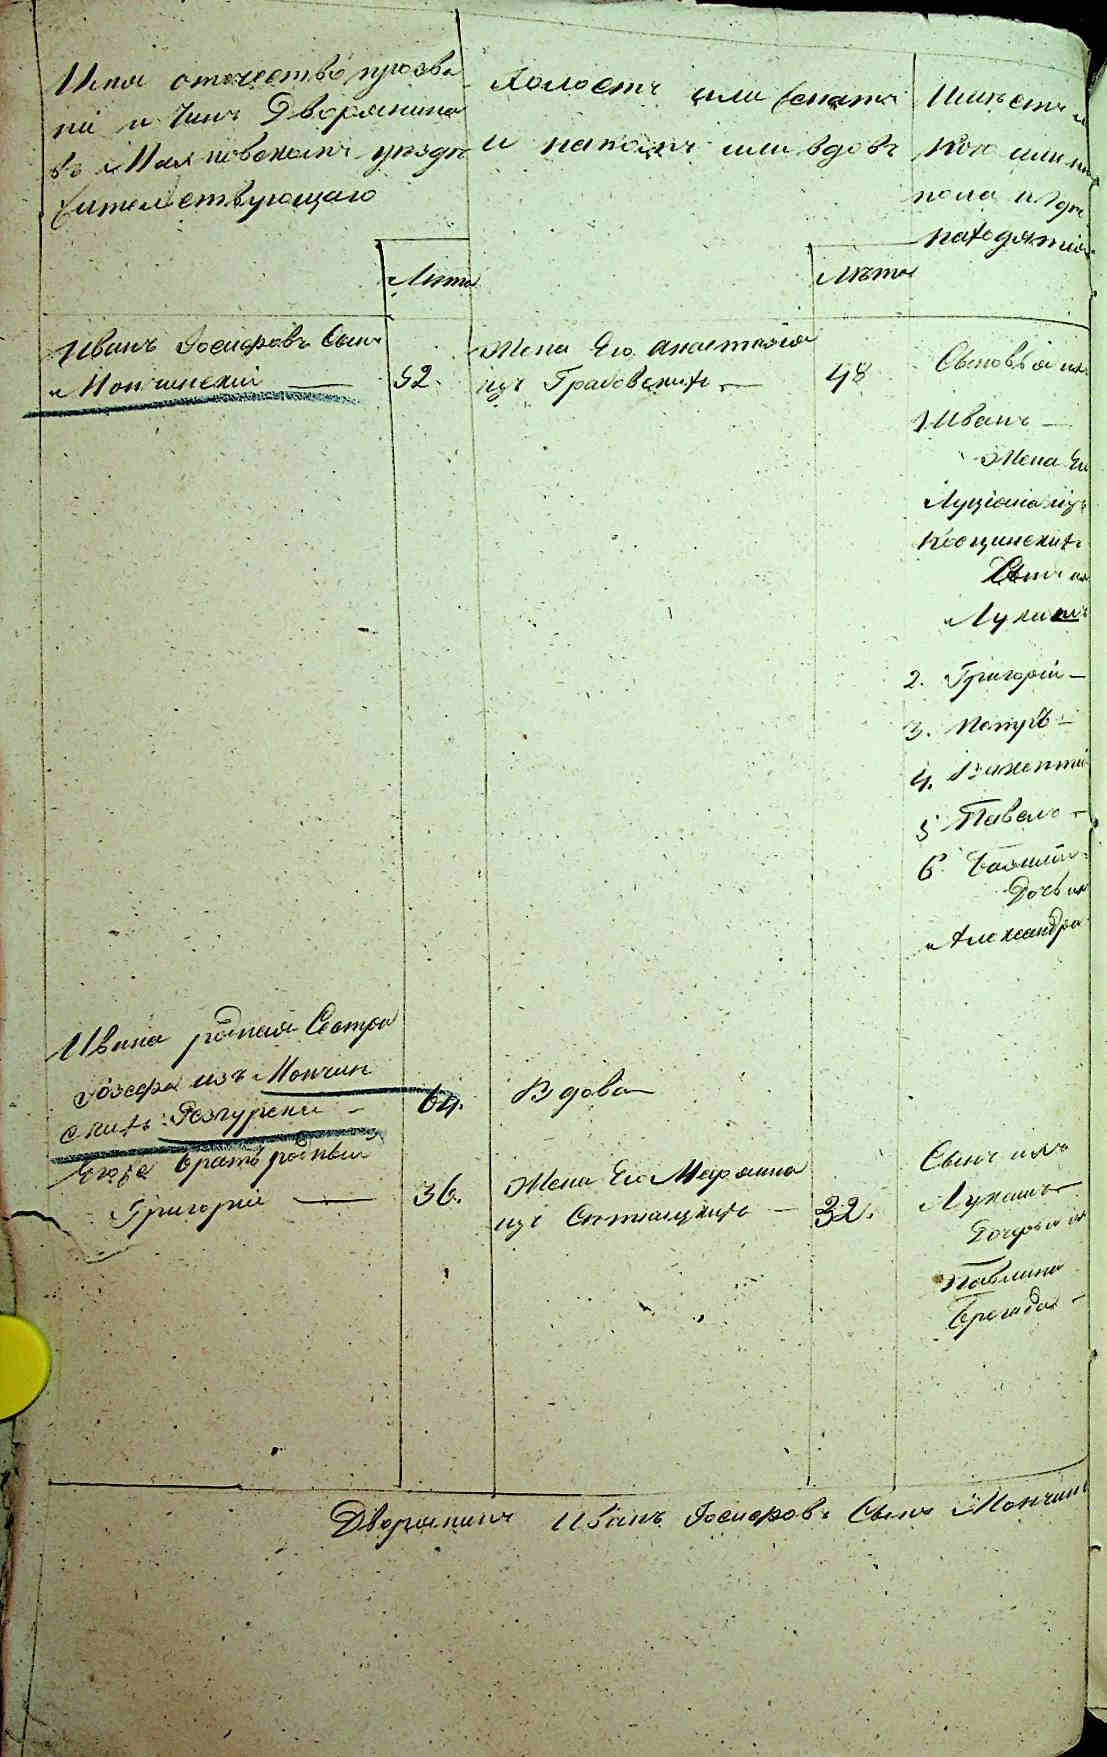 Имя отечество прозва
ніе и Чинъ Дворянина
въ Махновскомъ уездѣ
жительствующаго
Лѣта
Холостъ или женатъ
и накомъ или вдовъ
Лѣта
Имѣетъ
кого или
пола и где
находятся
Иванъ Іосифовъ Сынъ
Мончинскій — 52.
Жена Его Анастасія
изъ Грабовскихъ — 48
Сыновья ихъ
1 Иванъ —
Жена Его
Луціана изъ
Сынъ их
Лукашъ
2. Григорій —
3. Петръ —
4. Викентій
5 Павелъ —
6. Василій
Дочь их
Александра
Ивана родная Сестра
Іозефа изъ Мончин
скихъ — 64.
Вдова
Егоже Братъ родный
Григорій — 36.
Жена Его Марьянна
изъ — 32.
Сынъ ихъ
Лукашъ
Дочери их
Павлина
Бригида —
Дворянинъ Иванъ Іосифовъ Сынъ Мончин